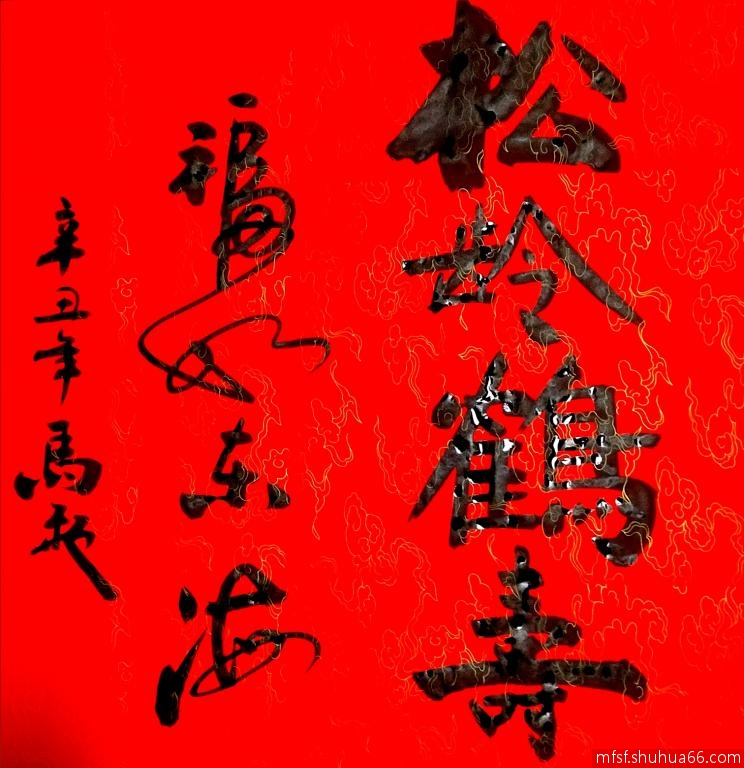 松龄鹤寿
福如东海
辛丑年馬
mfsf.shuhua66.com